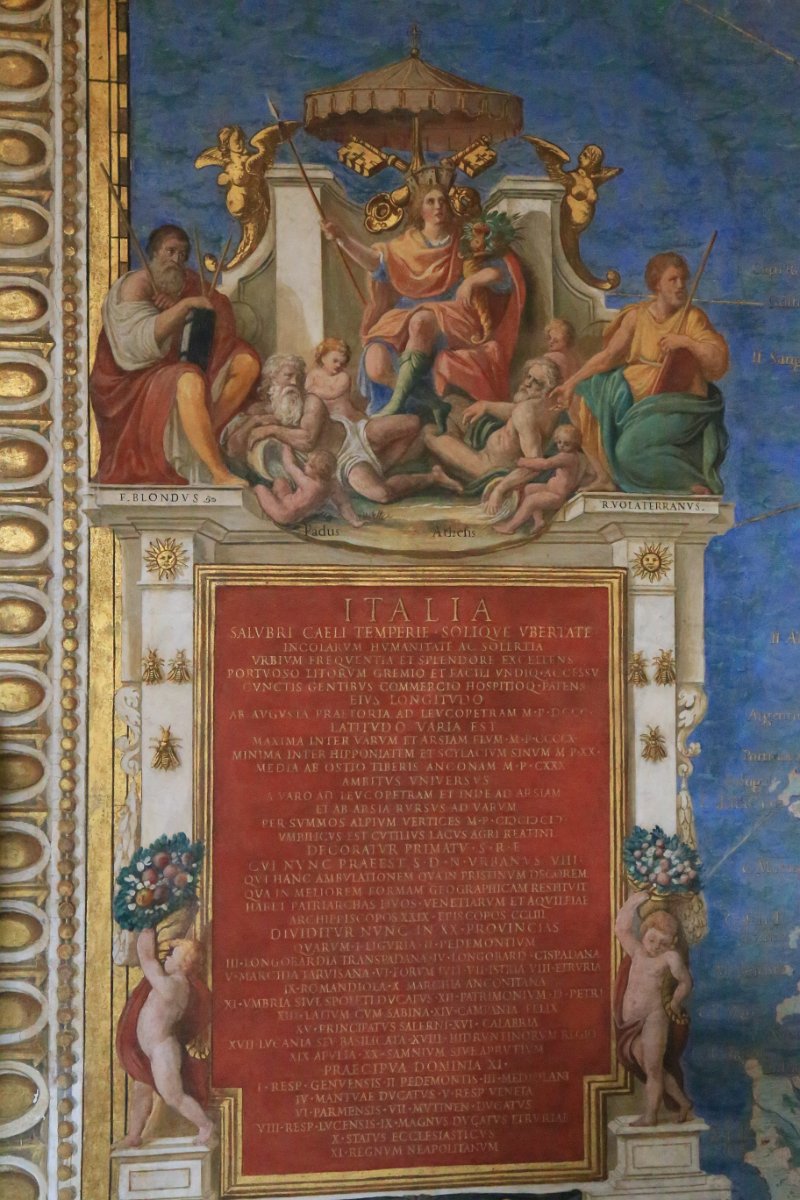 F. BLONDVS
R. VOLATERRANVS.
Padus
Athesis
ITALIA
SALVBRI CAELI TEMPERIE · SOLIQVE VBERTATE
INCOLARVM HVMANITATE AC SOLERTIA
VRBIVM FREQVENTIA ET SPLENDORE EXCELLENS
PORTVOSO LITORVM GREMIO ET FACILI VNDIQ · ACCESSV
CVNCTIS GENTIBVS COMMERCIO HOSPITIOQ · PATENS
EIVS LONGITVDO
AB AVGVSTA PRAETORIA AD LEVCOPETRAM M · P · DCCC ·
LATITVDO VARIA EST
MAXIMA INTER VARVM ET ARSIAM FLVM · M · P · CCCCX ·
MINIMA INTER HIPPONIATEM ET SCYLACIVM SINVM M · P · XX ·
MEDIA AB OSTIO TIBERIS ANCONAM M · P · CXXX ·
AMBITVS VNIVERSVS
A VARO AD LEVCOPETRAM ET INDE AD ARSIAM
ET AB ARSIA RVRSVS AD VARVM
PER SVMMOS ALPIVM VERTICES M · P ·
VMBILICVS EST CVTILIVS LACVS AGRI REATINI
DECORATVR PRIMATV · S · R · E
CVI NVNC PRAEEST S · D · N · VRBANVS VIII ·
QVI HANC AMBVLATIONEM QVA IN PRISTINVM DECOREM
QVA IN MELIOREM FORMAM GEOGRAPHICAM RESTITVIT
HABET PATRIARCHAS DVOS · VENETIARVM ET AQVILEIAE
ARCHIEPISCOPOS XXIX · EPISCOPOS CCLIII
DIVIDITVR NVNC IN XX · PROVINCIAS
QVARVM · I · LIGVRIA · II · PEDEMONTIVM
III · LONGOBARDIA TRANSPADANA · IV · LONGOBARD · CISPADANA
V · MARCHIA TARVISANA · VI · FORVM IVLII · VII · ISTRIA VIII · ETRVRIA
IX · ROMANDIOLA · X · MARCHIA ANCONITANA
XI · VMBRIA SIVE SPOLETI DVCATVS · XII · PATRIMONIVM · D · PETRI
XIII · LATIVM CVM SABINA · XIV · CAMPANIA FELIX
XV · PRINCIPATVS SALERNI · XVI · CALABRIA
XVIII LVCANIA SIV BASILICATA · XVIII · HIDRVNTINORVM REGIO
XIX APVLIA · XX · SAMNIVM SIVE APRVTIVM
PRAECIPVA DOMINIA XI ·
I · RESP · GENVENSIS · II PEDEMONTIS · III · MEDIOLANI
IV · MANTVAE DVCATVS · V · RESP VENETA
VI · PARMENSIS · VII · MVTINEN · DVCATVS
VIII · RESP · LVCENSIS · IX · MAGNVS DVCATVS ETRVRIAE
X · STATVS ECCLESIASTICVS
XI · REGNVM NEAPOLITANVM